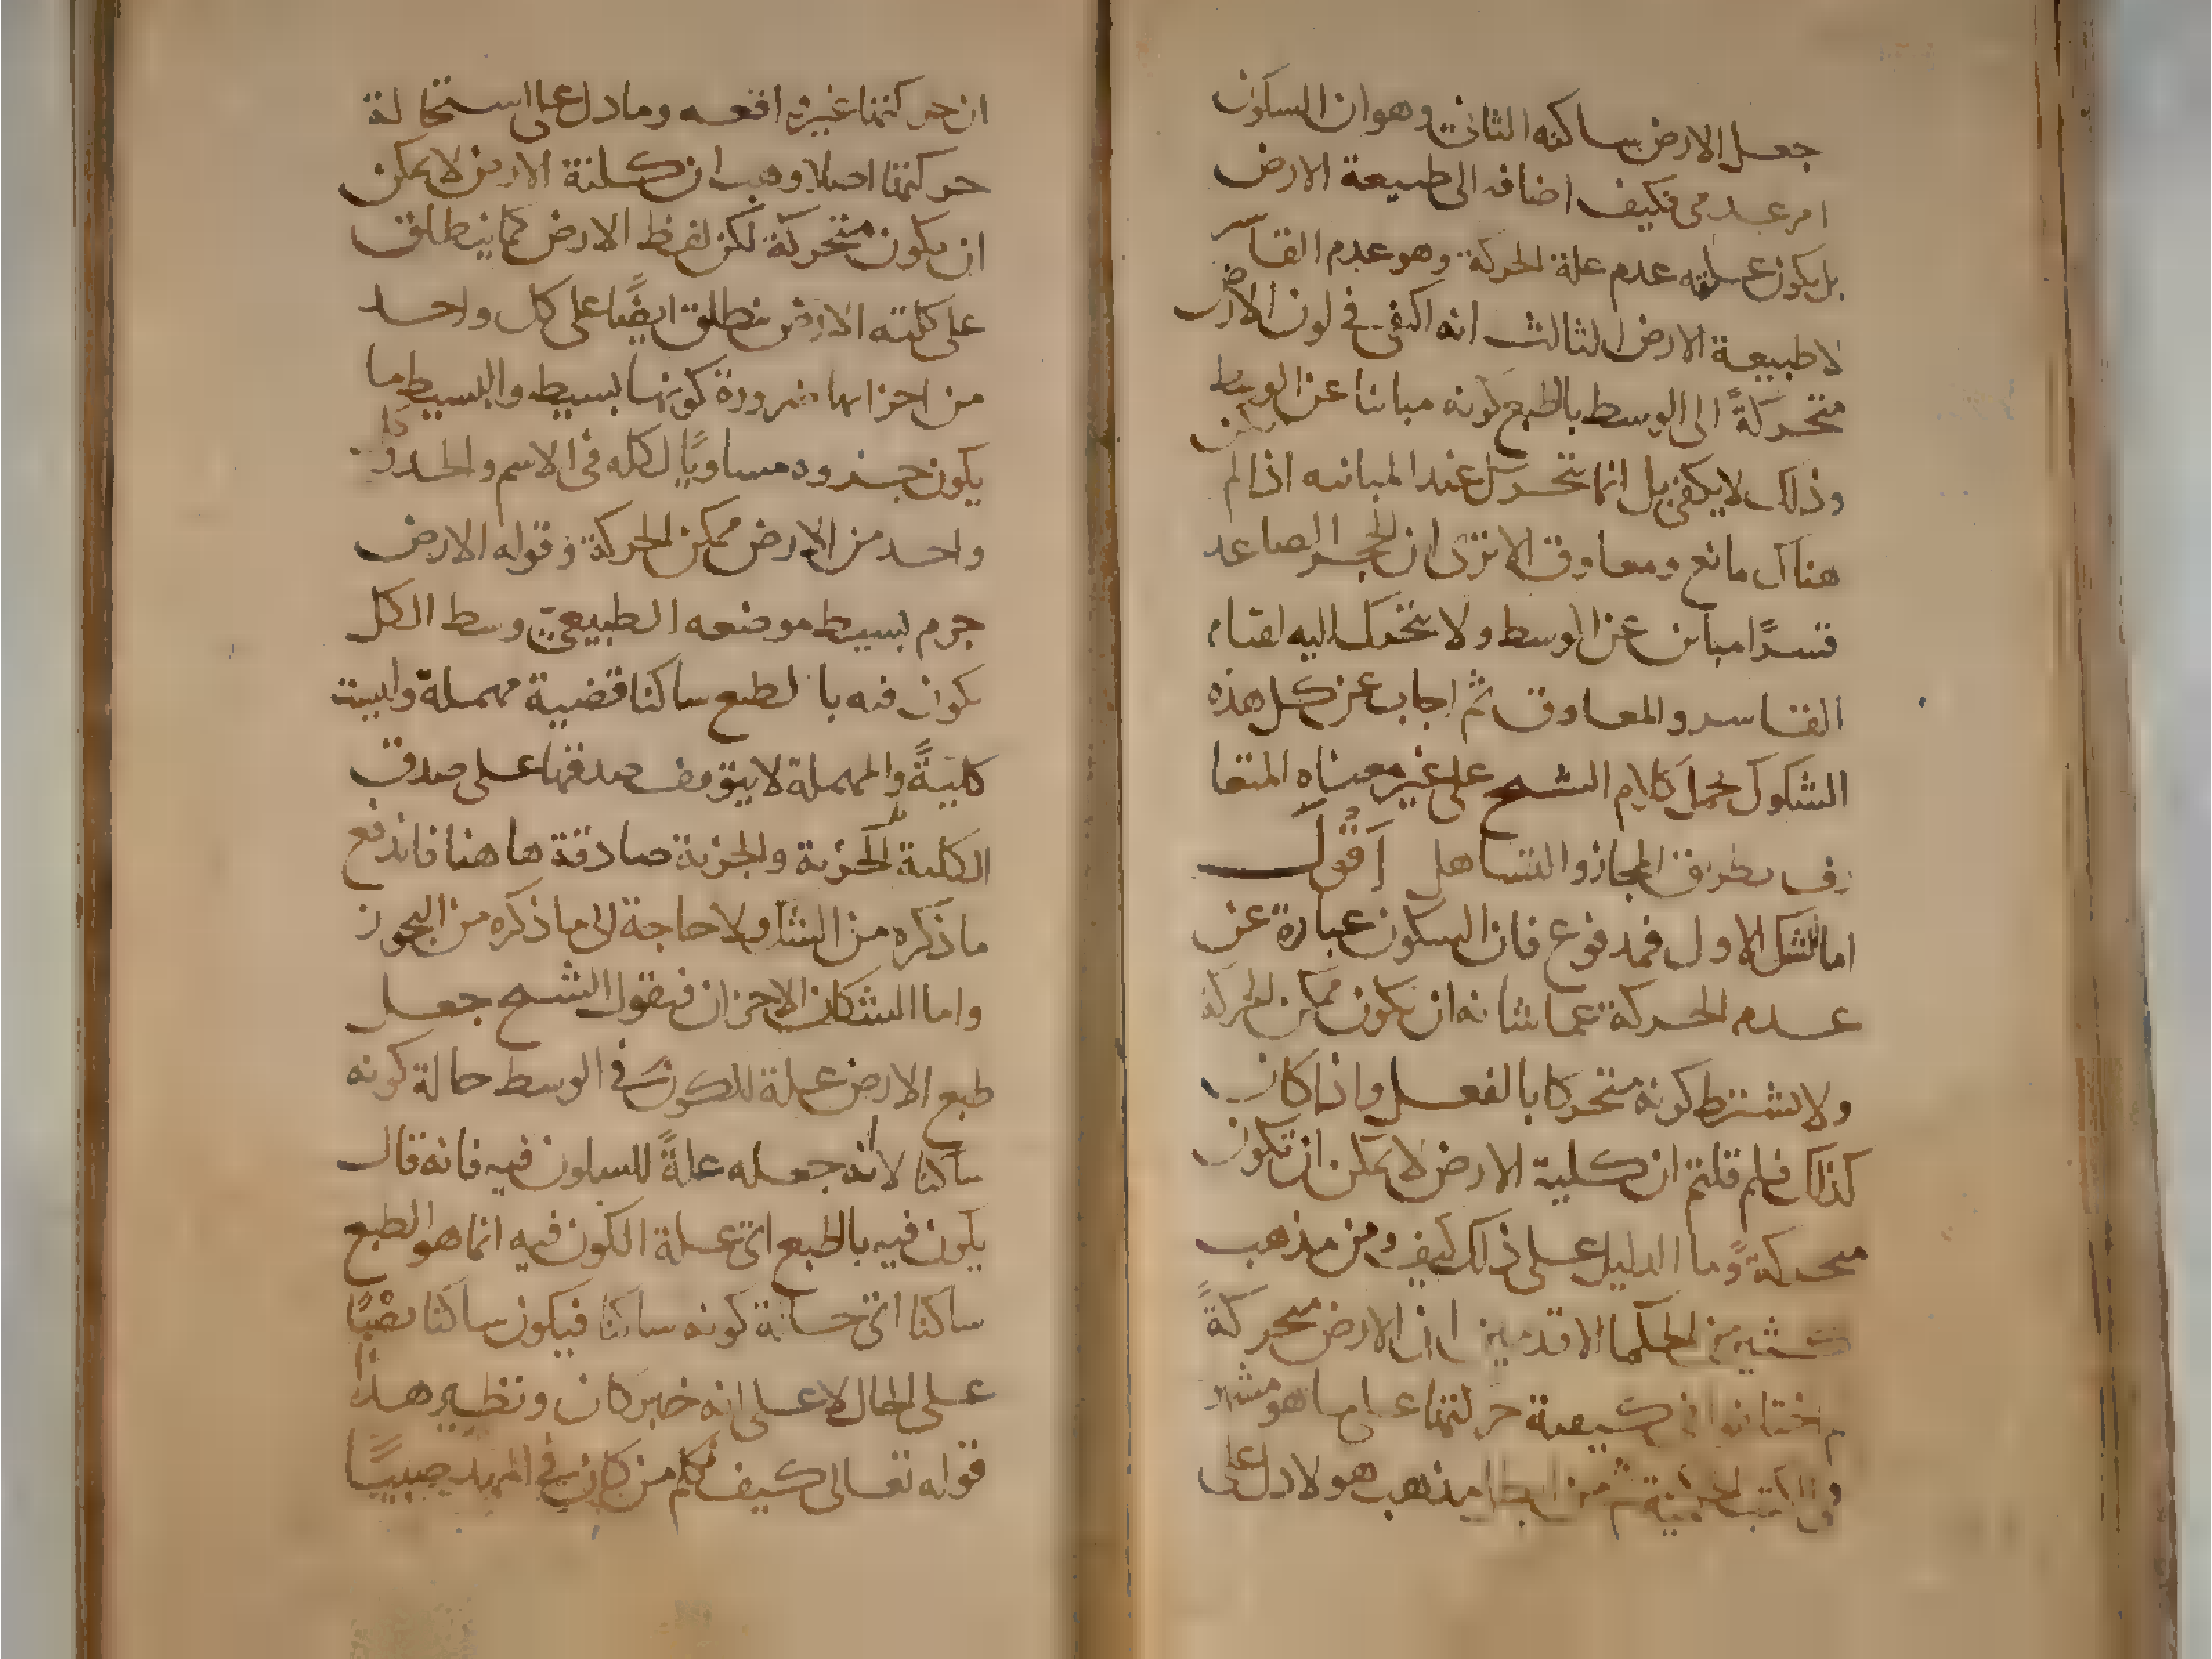 جعل الارض ساكنه الثاني وهو ان السكون
امر عدمى فكيف اضافه الى طبيعة الارض
بل يكون علته عدم علة الحركة وهو عدم القاسر
لا طبيعة الارض الثالث انه اكتفى في لون الارض
متحركةً الى الوسط بالطبع كونه مباينا عن الوسط
وذلك لا يكفى بل انما يتحرك عند المباينه اذا لم يكن
هناك مانع ومعاوق الا ترى ان الحجر الصاعد
قسرًا مباين عن الوسط ولا يتحرك اليه لقيام
القاسر والمعاوق ثم اجاب عن كل هذه
الشكوك بحمل كلام الشيخ على غير معناه المتعا
رف بطريق المجاز والتساهل اَقُولُ
اما الشك الاول فمدفوع فان السكون عبارة عن
عدم الحركة عما شانه ان يكون ممكن الحركة
ولا يشترط كونه متحركا بالفعل واذا كان
كذلك فلم قلتم ان كلية الارض لا يمكن ان تكون
متحركةً وما الدليل على ذلك كيف ومن مذهب
كثير من الحكما الاقدمين ان الارض متحركةً
كيفية حركتها على ما هو مشهور
مذهب هولا دل على
ان حركتها غير واقعه وما دل على استحالة
حركتها اصلا وهب ان كلية الارض لا يمكن
ان يكون متحركة لكن لفظ الارض كما ينطلق
على كلية الارض ينطلق ايضًا على كل واحد
من اجزايها ضرورة كونها بسيطه والبسيط ما
يكون جزوه مساويًا لكله في الاسم والحد وكل
واحد من الارض ممكن الحركة وقوله الارض
جرم بسيط موضعه الطبيعي وسط الكل
يكون فيه بالطبع ساكنا قضية مهملة وليست
كليةً والمهملة لا يتوقف صدقها على صدق
الكلية بل الجزية والجزية صادقة هاهنا فاندفع
ما ذكره من الشك ولا حاجة الى ما ذكره من التجوز
واما الشكان الاخران فنقول الشيخ جعل
طبع الارض علة للكون في الوسط حالة كونه
ساكنا لا انه جعله علةً للسكون فيه فانه قال
يكون فيه بالطبع اى علة الكون فيه انما هو الطبع
ساكنا اى حالة كونه ساكنا فيكون ساكنا نصْبًا
على الحال لا على انه خبر كان ونظير هذا
قوله تعالى كيف نكلم من كان في المهد صبيًا